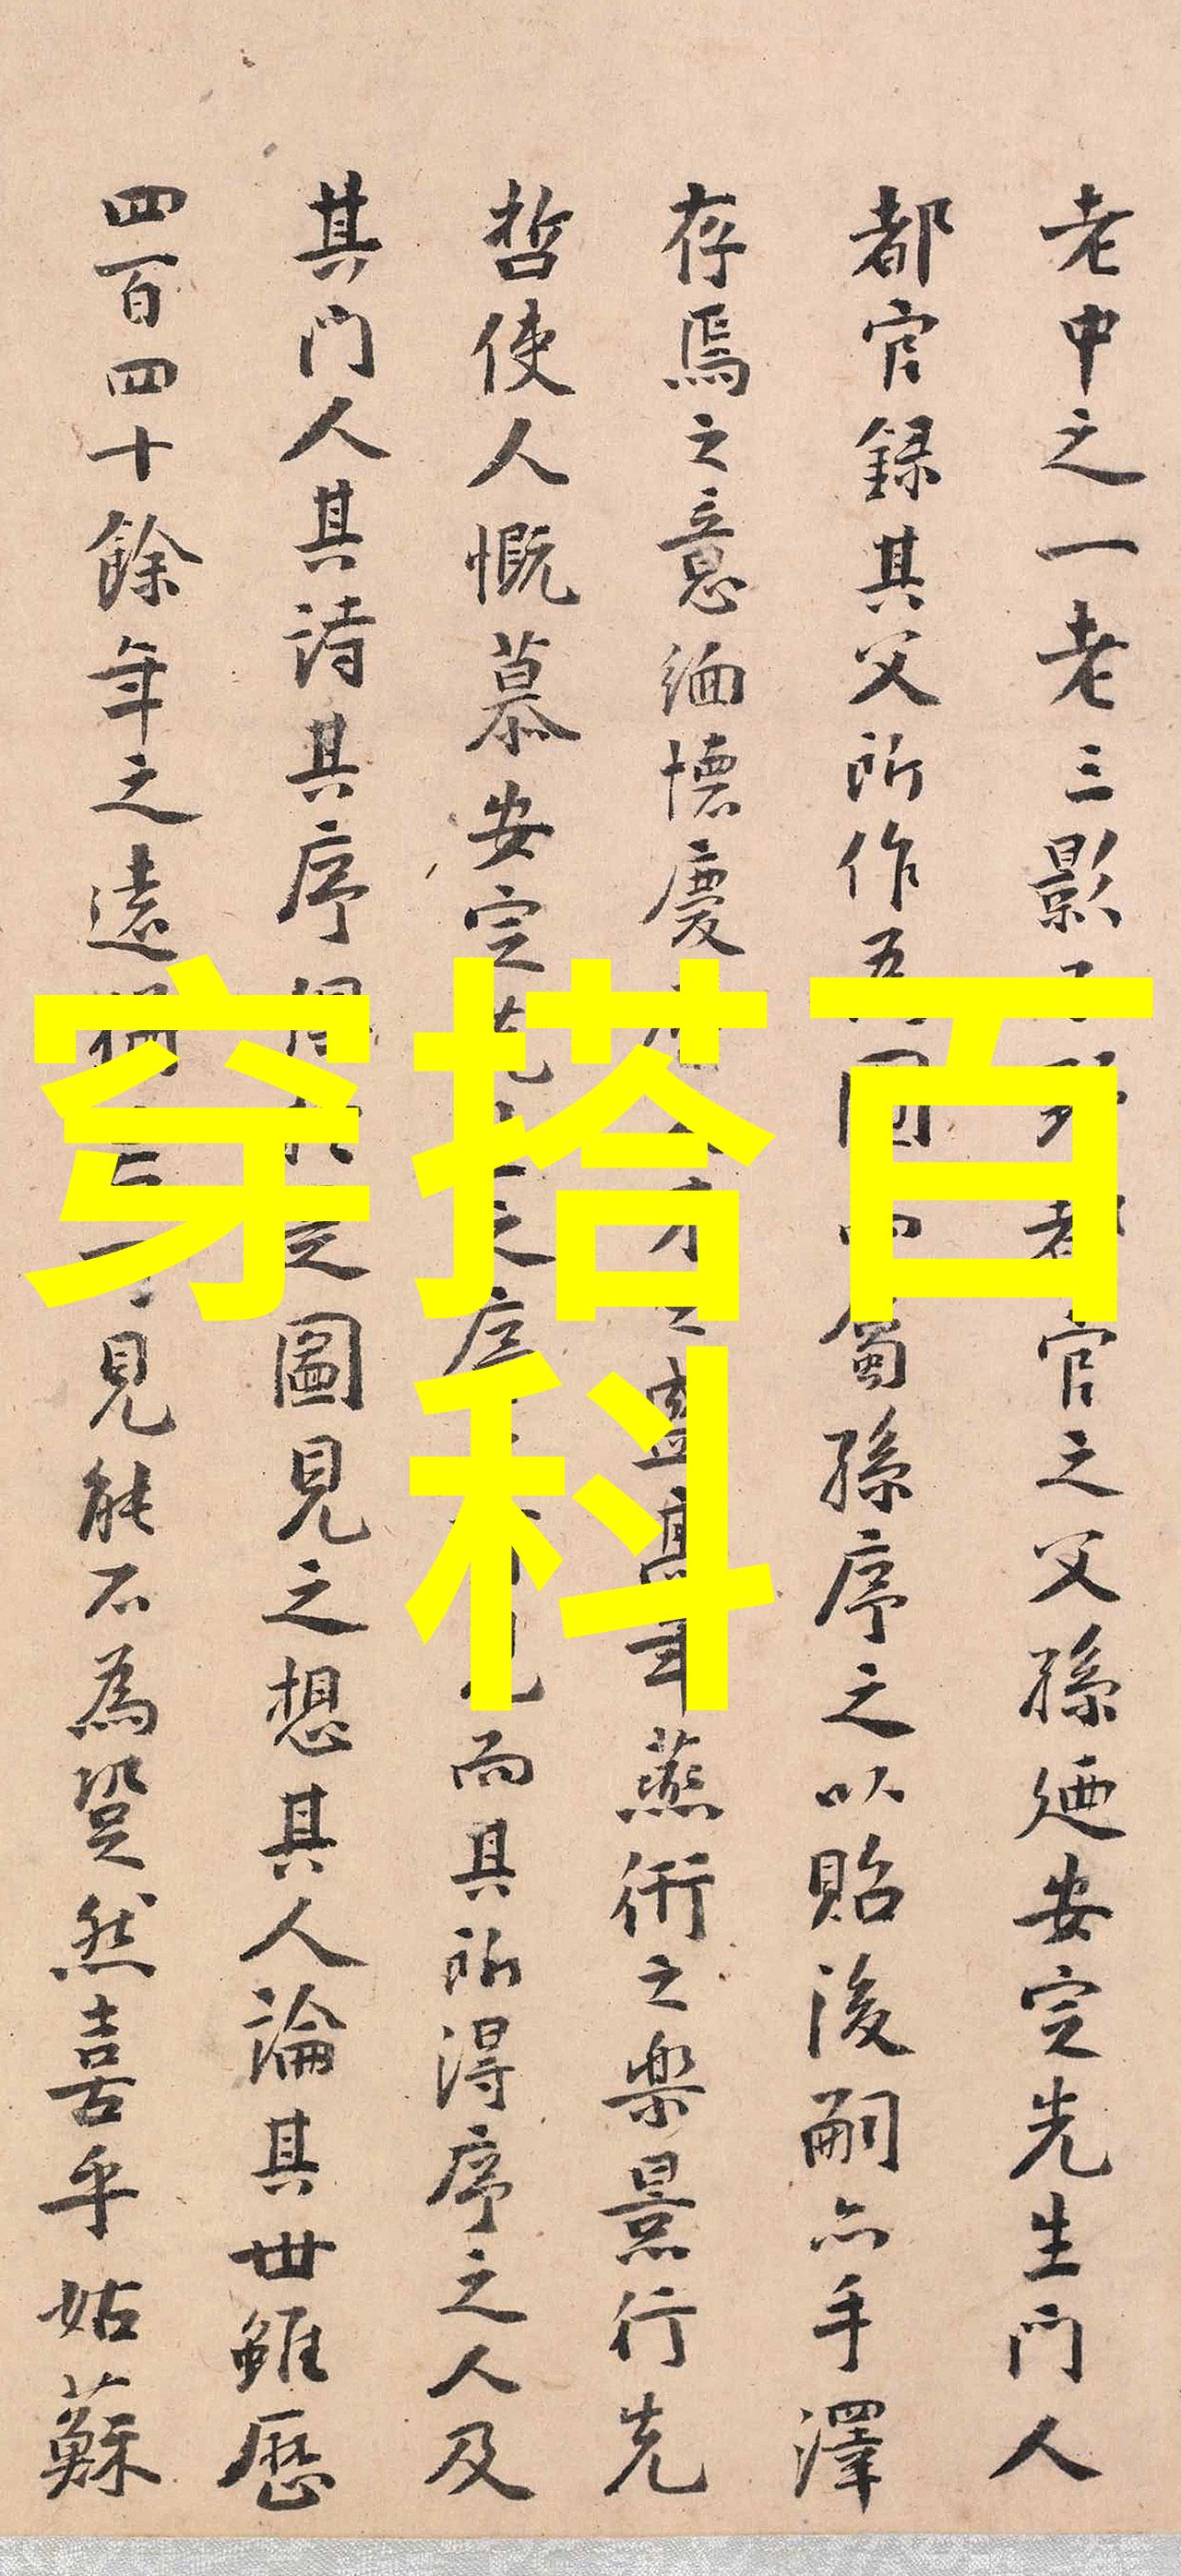 老中之一老三影子野都官之父孫廼安定先生門人
都官録其父所作五圖孫序之以貽後嗣亦手澤
存焉之意緬懷慶之盛高年燕衎之樂景行先
哲使人慨慕安定之序而其所得序之人及
其門人其詩其序之圖見之想其人論其世雖歷
四百四十餘年之遠猶見能不為跫然喜乎姑蘇
穿搭百
科